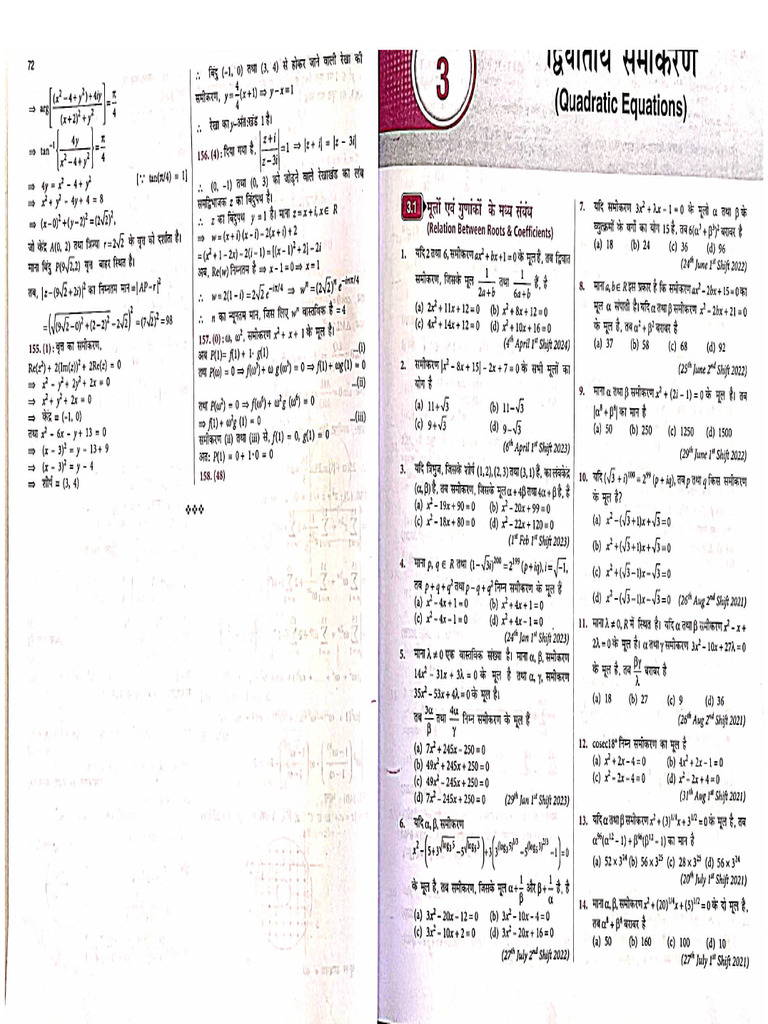 72
⇒ arg[((x²-4+y²)+4iy)/((x+2)²+y²)] = π/4
⇒ tan⁻¹[4y/(x²-4+y²)] = π/4
⇒ 4y = x² - 4 + y² [∵ tan(π/4) = 1]
⇒ x² + y² - 4y + 4 = 8
⇒ (x-0)²+(y-2)²=(2√2)²,
जो केंद्र A(0, 2) तथा त्रिज्या r=2√2 के वृत्त को दर्शाता है।
माना बिंदु P(9√2,2) वृत्त बाहर स्थित है।
तब, |z-(9√2+2i)|² का निम्नतम मान=|AP-r|²
=(√((9√2-0)²+(2-2)²)-2√2)²=(7√2)²=98
155. (1): वृत्त का समीकरण,
Re(z²) + 2(Im(z))² + 2Re(z) = 0
⇒ x² - y² + 2y² + 2x = 0
⇒ x² + y² + 2x = 0
⇒ केंद्र = (-1, 0)
तथा x² - 6x - y + 13 = 0
⇒ (x - 3)² = y - 13 + 9
⇒ (x - 3)² = y - 4
⇒ शीर्ष = (3, 4)
∴ बिंदु (-1, 0) तथा (3, 4) से होकर जाने वाली रेखा की
समीकरण, y = 4/4 (x+1) ⇒ y - x = 1
∴ रेखा का y-अंतःखंड 1 है।
156. (4): दिया गया है, |(z+i)/(z-3i)| = 1 ⇒ |z + i| = |z - 3i|
∴ (0, -1) तथा (0, 3) को जोड़ने वाले रेखाखंड का लंब
समद्विभाजक z का बिंदुपथ है।
∴ z का बिंदुपथ y = 1 है। माना z = x + i, x ∈ R
⇒ w = (x + i) (x - i) - 2(x + i) + 2
= (x² + 1 - 2x) - 2(i - 1) = [(x - 1)² + 2] - 2i
अब, Re(w) निम्नतम है ⇒ x - 1 = 0 ⇒ x = 1
∴ w = 2(1 - i) = 2√2 e^(-iπ/4) ⇒ wⁿ = (2√2)ⁿ e^(-inπ/4)
∴ n का न्यूनतम मान, जिस लिए wⁿ वास्तविक है = 4
157. (0): ω, ω², समीकरण x² + x + 1 के मूल है।
अब P(1)= f(1) + 1· g(1) ...(i)
तथा P(ω) = 0 ⇒ f(ω³) + ω g(ω³) = 0 ⇒ f(1) + ωg(1) = 0
...(ii)
तथा P(ω²) = 0 ⇒ f(ω⁶) + ω²g (ω⁶) = 0
⇒ f(1) + ω²g (1) = 0 ...(iii)
समीकरण (ii) तथा (iii) से, f(1) = 0, g(1) = 0
अतः P(1) = 0 + 1·0 = 0
158. (48)
3
द्विघातीय समीकरण
(Quadratic Equations)
3.1 मूलों एवं गुणांकों के मध्य संबंध
(Relation Between Roots & Coefficients)
1. यदि 2 तथा 6, समीकरण ax² + bx + 1 = 0 के मूल है, तब द्विघात
समीकरण, जिसके मूल 1/(2a+b) तथा 1/(6a+b) हैं, है
(a) 2x² + 11x + 12 = 0 (b) x² + 8x + 12 = 0
(c) 4x² + 14x + 12 = 0 (d) x² + 10x + 16 = 0
(4th April 1st Shift 2024)
2. समीकरण |x² - 8x + 15| - 2x + 7 = 0 के सभी मूलों का
योग है
(a) 11+√3 (b) 11-√3
(c) 9+√3 (d) 9-√3
(6th April 1st Shift 2023)
3. यदि त्रिभुज, जिसके शीर्ष (1, 2), (2, 3) तथा (3, 1) है, का लंबकेंद्र
(α, β) है, तब समीकरण, जिसके मूल α + 4β तथा 4α + β है, है
(a) x² - 19x + 90 = 0 (b) x² - 20x + 99 = 0
(c) x² - 18x + 80 = 0 (d) x² - 22x + 120 = 0
(1st Feb 1st Shift 2023)
4. माना p, q ∈ R तथा (1-√3i)²⁰⁰ = 2¹⁹⁹ (p + iq), i = √-1,
तब p + q + q² तथा p - q + q² निम्न समीकरण के मूल हैं
(a) x² - 4x + 1 = 0 (b) x² + 4x + 1 = 0
(c) x² - 4x - 1 = 0 (d) x² + 4x - 1 = 0
(24th Jan 1st Shift 2023)
5. माना λ ≠ 0 एक वास्तविक संख्या है। माना α, β, समीकरण
14x² - 31x + 3λ = 0 के मूल है तथा α, γ, समीकरण
35x² - 53x + 4λ = 0 के मूल है।
तब 3α/β तथा 4α/γ निम्न समीकरण के मूल हैं
(a) 7x² + 245x - 250 = 0
(b) 49x² + 245x + 250 = 0
(c) 49x² - 245x + 250 = 0
(d) 7x² - 245x + 250 = 0 (29th Jan 1st Shift 2023)
6. यदि α, β, समीकरण
x² - (5 + 3^√(log₃5) - 5^√(log₅3)) + 3(3^((log₃5)^(1/3)) - 5^((log₅3)^(2/3)) - 1) = 0
के मूल है, तब समीकरण, जिसके मूल α + 1/β और β + 1/α है, है
(a) 3x² - 20x - 12 = 0 (b) 3x² - 10x - 4 = 0
(c) 3x² - 10x + 2 = 0 (d) 3x² - 20x + 16 = 0
(27th July 2nd Shift 2022)
7. यदि समीकरण 3x² + λx - 1 = 0 के मूलों α तथा β के
व्युत्क्रमों के वर्गों का योग 15 है, तब 6(α³ + β³)² बराबर है
(a) 18 (b) 24 (c) 36 (d) 96
(24th June 1st Shift 2022)
8. माना a, b ∈ R इस प्रकार है कि समीकरण ax² - 2bx + 15 = 0 का
मूल α संपाती है। यदि α तथा β समीकरण x² - 2bx + 21 = 0
के मूल है, तब α² + β² बराबर है
(a) 37 (b) 58 (c) 68 (d) 92
(25th June 2nd Shift 2022)
9. माना α तथा β समीकरण x² + (2i - 1) = 0 के मूल है। तब
|α⁸ + β⁸| का मान है
(a) 50 (b) 250 (c) 1250 (d) 1500
(29th June 1st Shift 2022)
10. यदि (√3 + i)¹⁰⁰ = 2⁹⁹ (p + iq), तब p तथा q किस समीकरण
के मूल है?
(a) x² - (√3+1)x + √3 = 0
(b) x² + (√3+1)x + √3 = 0
(c) x² + (√3-1)x - √3 = 0
(d) x² - (√3-1)x - √3 = 0 (26th Aug 2nd Shift 2021)
11. माना λ ≠ 0, R में स्थित है। यदि α तथा β समीकरण x² - x +
2λ = 0 के मूल है। α तथा γ समीकरण 3x² - 10x + 27λ = 0
के मूल है, तब βγ/λ बराबर है
(a) 18 (b) 27 (c) 9 (d) 36
(26th Aug 2nd Shift 2021)
12. cosec18° निम्न समीकरण का मूल है
(a) x² + 2x - 4 = 0 (b) 4x² + 2x - 1 = 0
(c) x² - 2x - 4 = 0 (d) x² - 2x + 4 = 0
(31th Aug 1st Shift 2021)
13. यदि α तथा β समीकरण x² + (3)^(1/4)x + 3^(1/2) = 0 के मूल है, तब
α⁹⁶(α¹² - 1) + β⁹⁶(β¹² - 1) का मान है
(a) 52 × 3²⁴ (b) 56 × 3²⁵ (c) 28 × 3²⁵ (d) 56 × 3²⁴
(20th July 1st Shift 2021)
14. माना α, β, समीकरण x² + (20)^(1/4)x + (5)^(1/2) = 0 के दो मूल है,
तब α⁸ + β⁸ बराबर है
(a) 50 (b) 160 (c) 100 (d) 10
(27th July 1st Shift 2021)